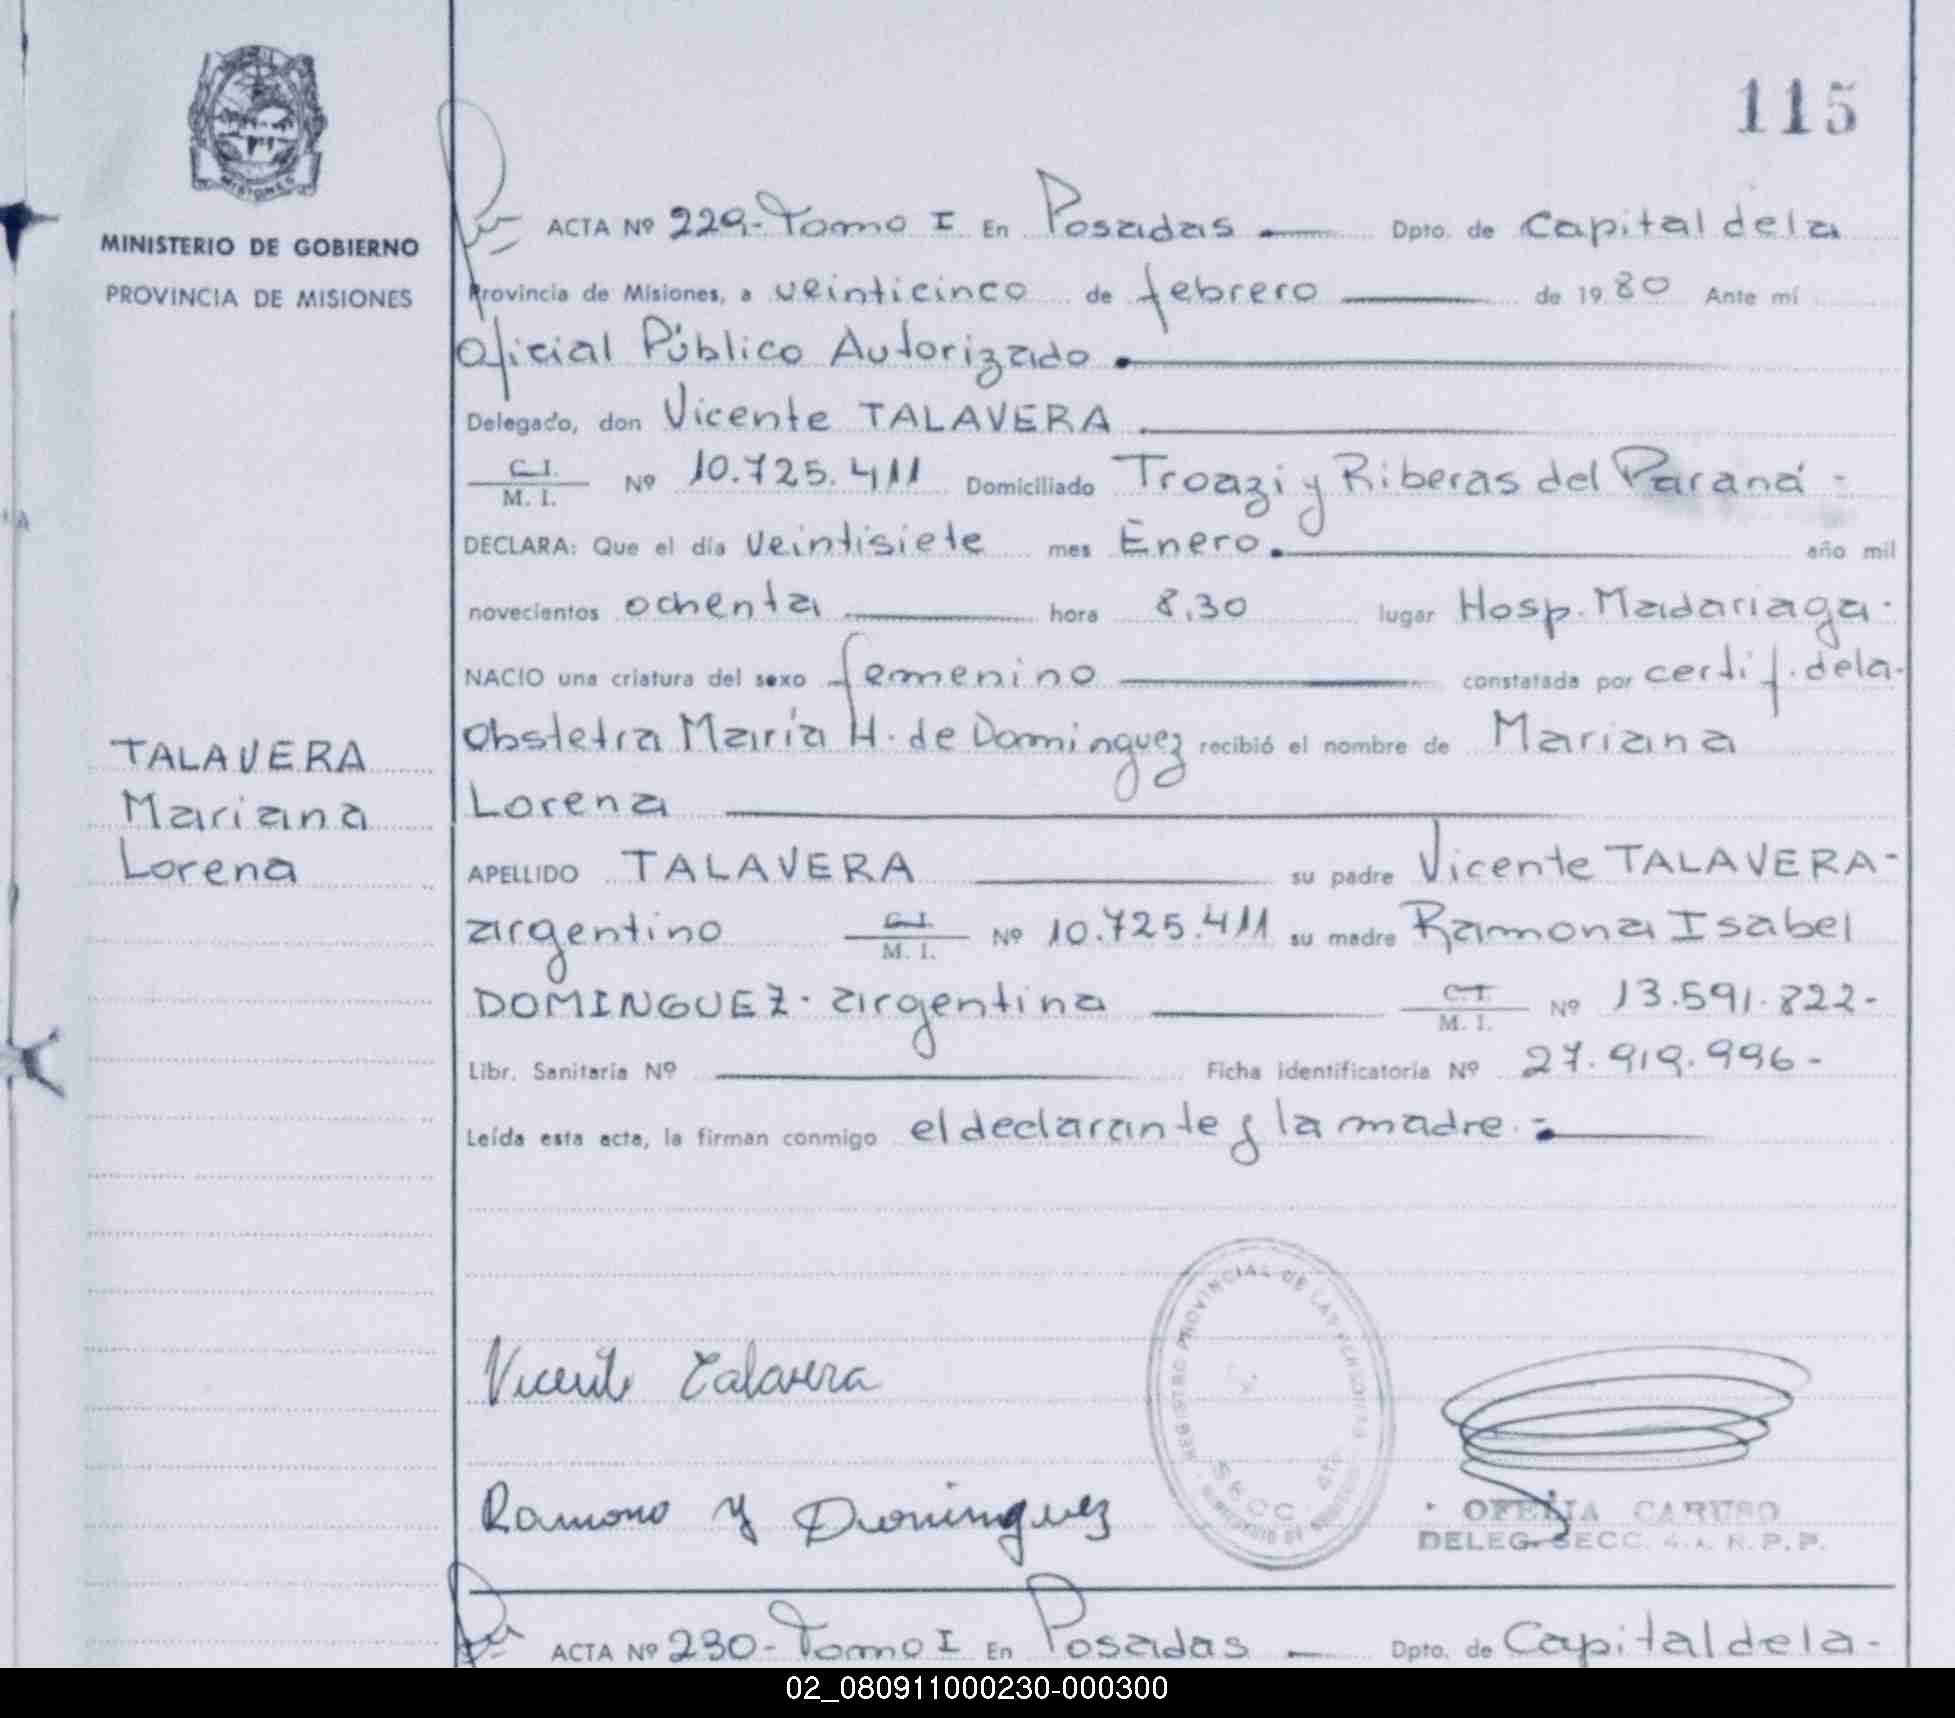 115
MISIONES
MINISTERIO DE GOBIERNO
PROVINCIA DE MISIONES
TALAVERA
Mariana
Lorena
ACTA Nº 229.- Tomo I En Posadas Dpto. de Capital de la
Provincia de Misiones, a veinticinco de febrero de 1980 Ante mí
Oficial Público Autorizado.
Delegado, don Vicente TALAVERA
C.I. M. I. Nº 10.725.411 Domiciliado Troazi y Riberas del Paraná -
DECLARA: Que el día veintisiete mes Enero. año mil
novecientos ochenta hora 8,30 lugar Hosp. Madariaga.
NACIO una criatura del sexo femenino constatada por certif. de la-
Obstetra María H. de Dominguez recibió el nombre de Mariana
Lorena
APELLIDO TALAVERA su padre Vicente TALAVERA-
argentino C.I. M. I. Nº 10.725.411 su madre Ramona Isabel
DOMINGUEZ. argentina C.I. M. I. Nº 13.591.822-
Libr. Sanitaria Nº Ficha identificatoria Nº 27.919.996-
Leída esta acta, la firman conmigo el declarante y la madre.-
Vicente Talavera
REGISTRO PROVINCIAL DE LAS PERSONAS
SECC. 4ta
Ramona Y Dominguez
OFELIA CARUSO
DELEG. SECC. 4.a. R.P.P.
ACTA Nº 230- Tomo I En Posadas Dpto. de Capital de la-
02_080911000230-000300